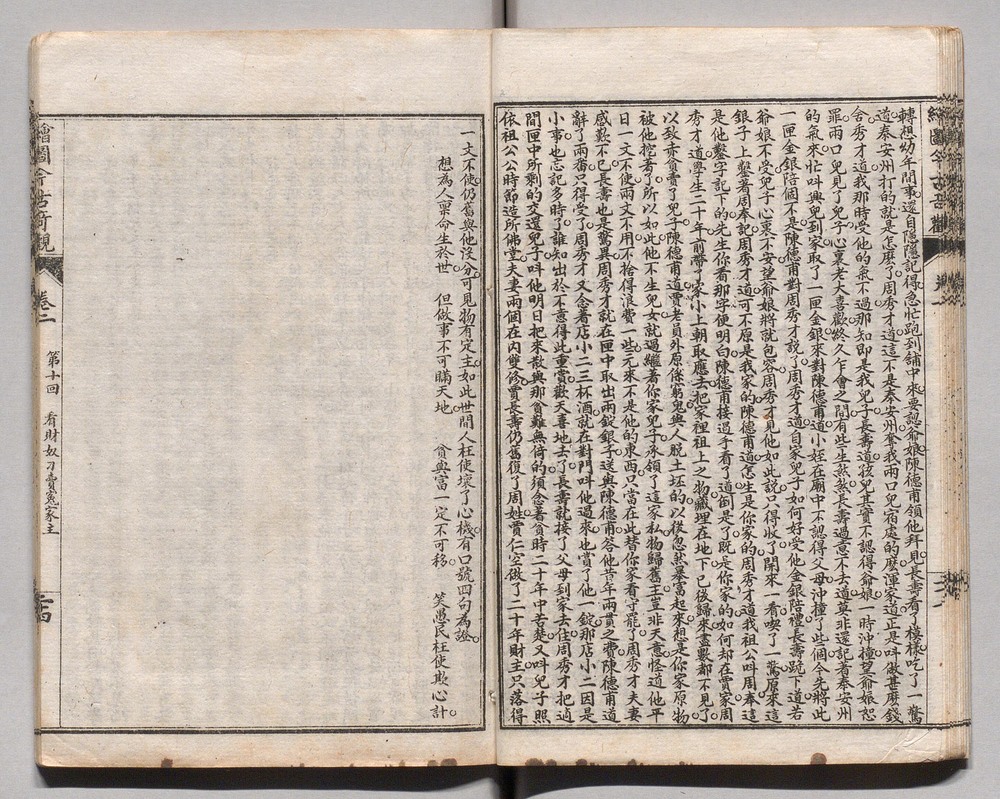 轉想幼年間事還自隱隱記得急忙跑到舖中來要認爺娘陳德甫領他拜見長壽看了模樣吃了一驚
道泰安州打的就是怎麼了周秀才道這不是泰安州奪我兩口兒宿處的麼渾家道正是叫做甚麼錢
舍秀才道我那時受他的氣不過那知即是我兒子長壽道孩兒其實不認得爺娘一時沖撞望爺娘恕
罪兩口兒見了兒子心裏老大喜歡終久乍會之間有些生煞煞長壽過意不去道莫非還記著泰安州
的氣來忙叫興兒到家取了一匣金銀來對陳德甫道小姪在廟中不認得父母沖撞了些個今先將此
一匣金銀陪個不是陳德甫對周秀才說了周秀才道自家兒子如何好受他金銀陪禮長壽跪下道若
爺娘不受兒子心裏不安望爺娘將就包容周秀才見他如此說只得收了開來一看喫了一驚原來這
銀子上鑿著周奉記周秀才道可不原是我家的陳德甫道怎生是你家的周秀才道我祖公叫周奉這
是他鑿字記下的先生你看那字便明白陳德甫接過手看了道倒是了既是你家的如何却在賈家周
秀才道學生二十年前帶了家小上朝取應去把家裡祖上之物藏埋在地下已後歸來盡數都不見了
以致赤貧賣了兒子陳德甫道賈老員外原係窮鬼與人脫土坯的以後忽然暴富起來想是你家原物
被他挖著了所以如此他不生兒女就過繼著你家兒子承領了這家私物歸舊主豈非天意怪道他平
日一文不使兩文不用不捨得浪費一些元來不是他的東西只當在此替你家看守罷了周秀才夫妻
感歎不已長壽也是驚異周秀才就在匣中取出兩錠銀子送與陳德甫答他昔年兩貫之費陳德甫道
辭了兩番只得受了周秀才又念著店小二三杯酒就在對門叫他過來也賞了他一錠那店小二因是
小事也忘記多時了誰知出於不意得此重賞歡天喜地去了長壽就接了父母到家去住周秀才把適
間匣中所剩的交還兒子叫他明日把來散與那貧難無倚的須念著貧時二十年中苦楚又叫兒子照
依祖公公時節造所佛堂夫妻兩個在內雙修賈長壽仍舊復了周姓賈仁空做了二十年財主只落得
一文不使仍舊與他沒分可見物有定主如此世間人枉使壞了心機有口號四句為證
想為人稟命生於世 但做事不可瞞天地 貧與富一定不可移 笑愚民枉使欺心計
繪圖今古奇觀 卷二 第十回 看財奴刁賣冤家主